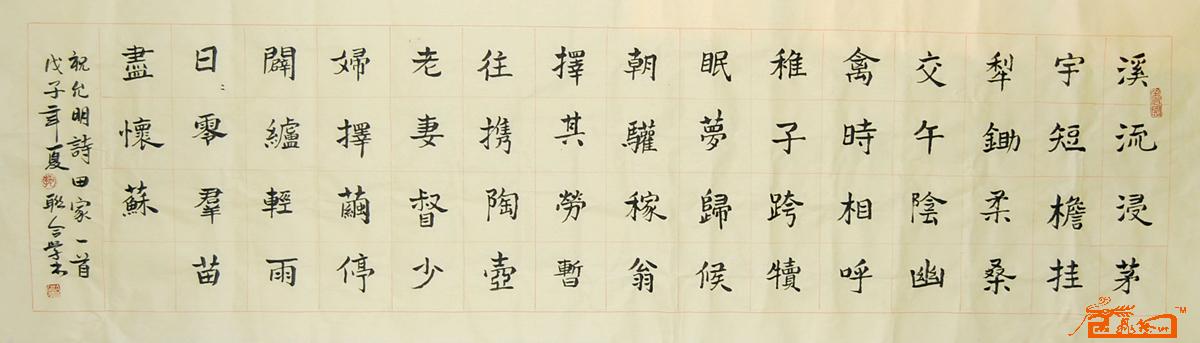 溪流浸茅
宇短檐挂
犁鋤柔桑
交午陰幽
禽時相呼
稚子跨犢
眠夢歸候
朝驩稼翁
擇其勞暫
往携陶壺
老妻督少
婦擇繭停
闢纑輕雨
日零羣苗
盡懷蘇
祝允明詩田家一首
戊子年夏
TM